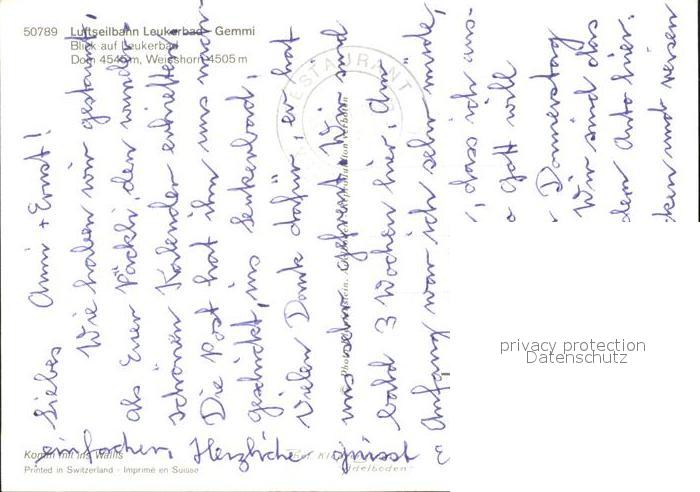 50789 Luftseilbahn Leukerbad - Gemmi
Blick auf Leukerbad
Dom 4545 m, Weisshorn 4505 m
RESTAURANT
Liebes Anni + Ernst!
Wie haben wir gestaunt,
als Euer Päckli, den wunder-
schönen Kalender enthielten
Die Post hat ihn uns nach-
geschickt, ins Leukerbad,
Vielen Dank dafür, er hat
uns sehr gefreut. Wir sind
bald 3 Wochen hier, Am
Anfang war ich sehr müde,
, dass ich aus-
Gott will
Donnerstag
Wir sind das
dem Auto hier.
ken und reisen
einfacher. Herzliche grüsst
privacy protection
Datenschutz
Komm mit ins Wallis
Printed in Switzerland - Imprimé en Suisse